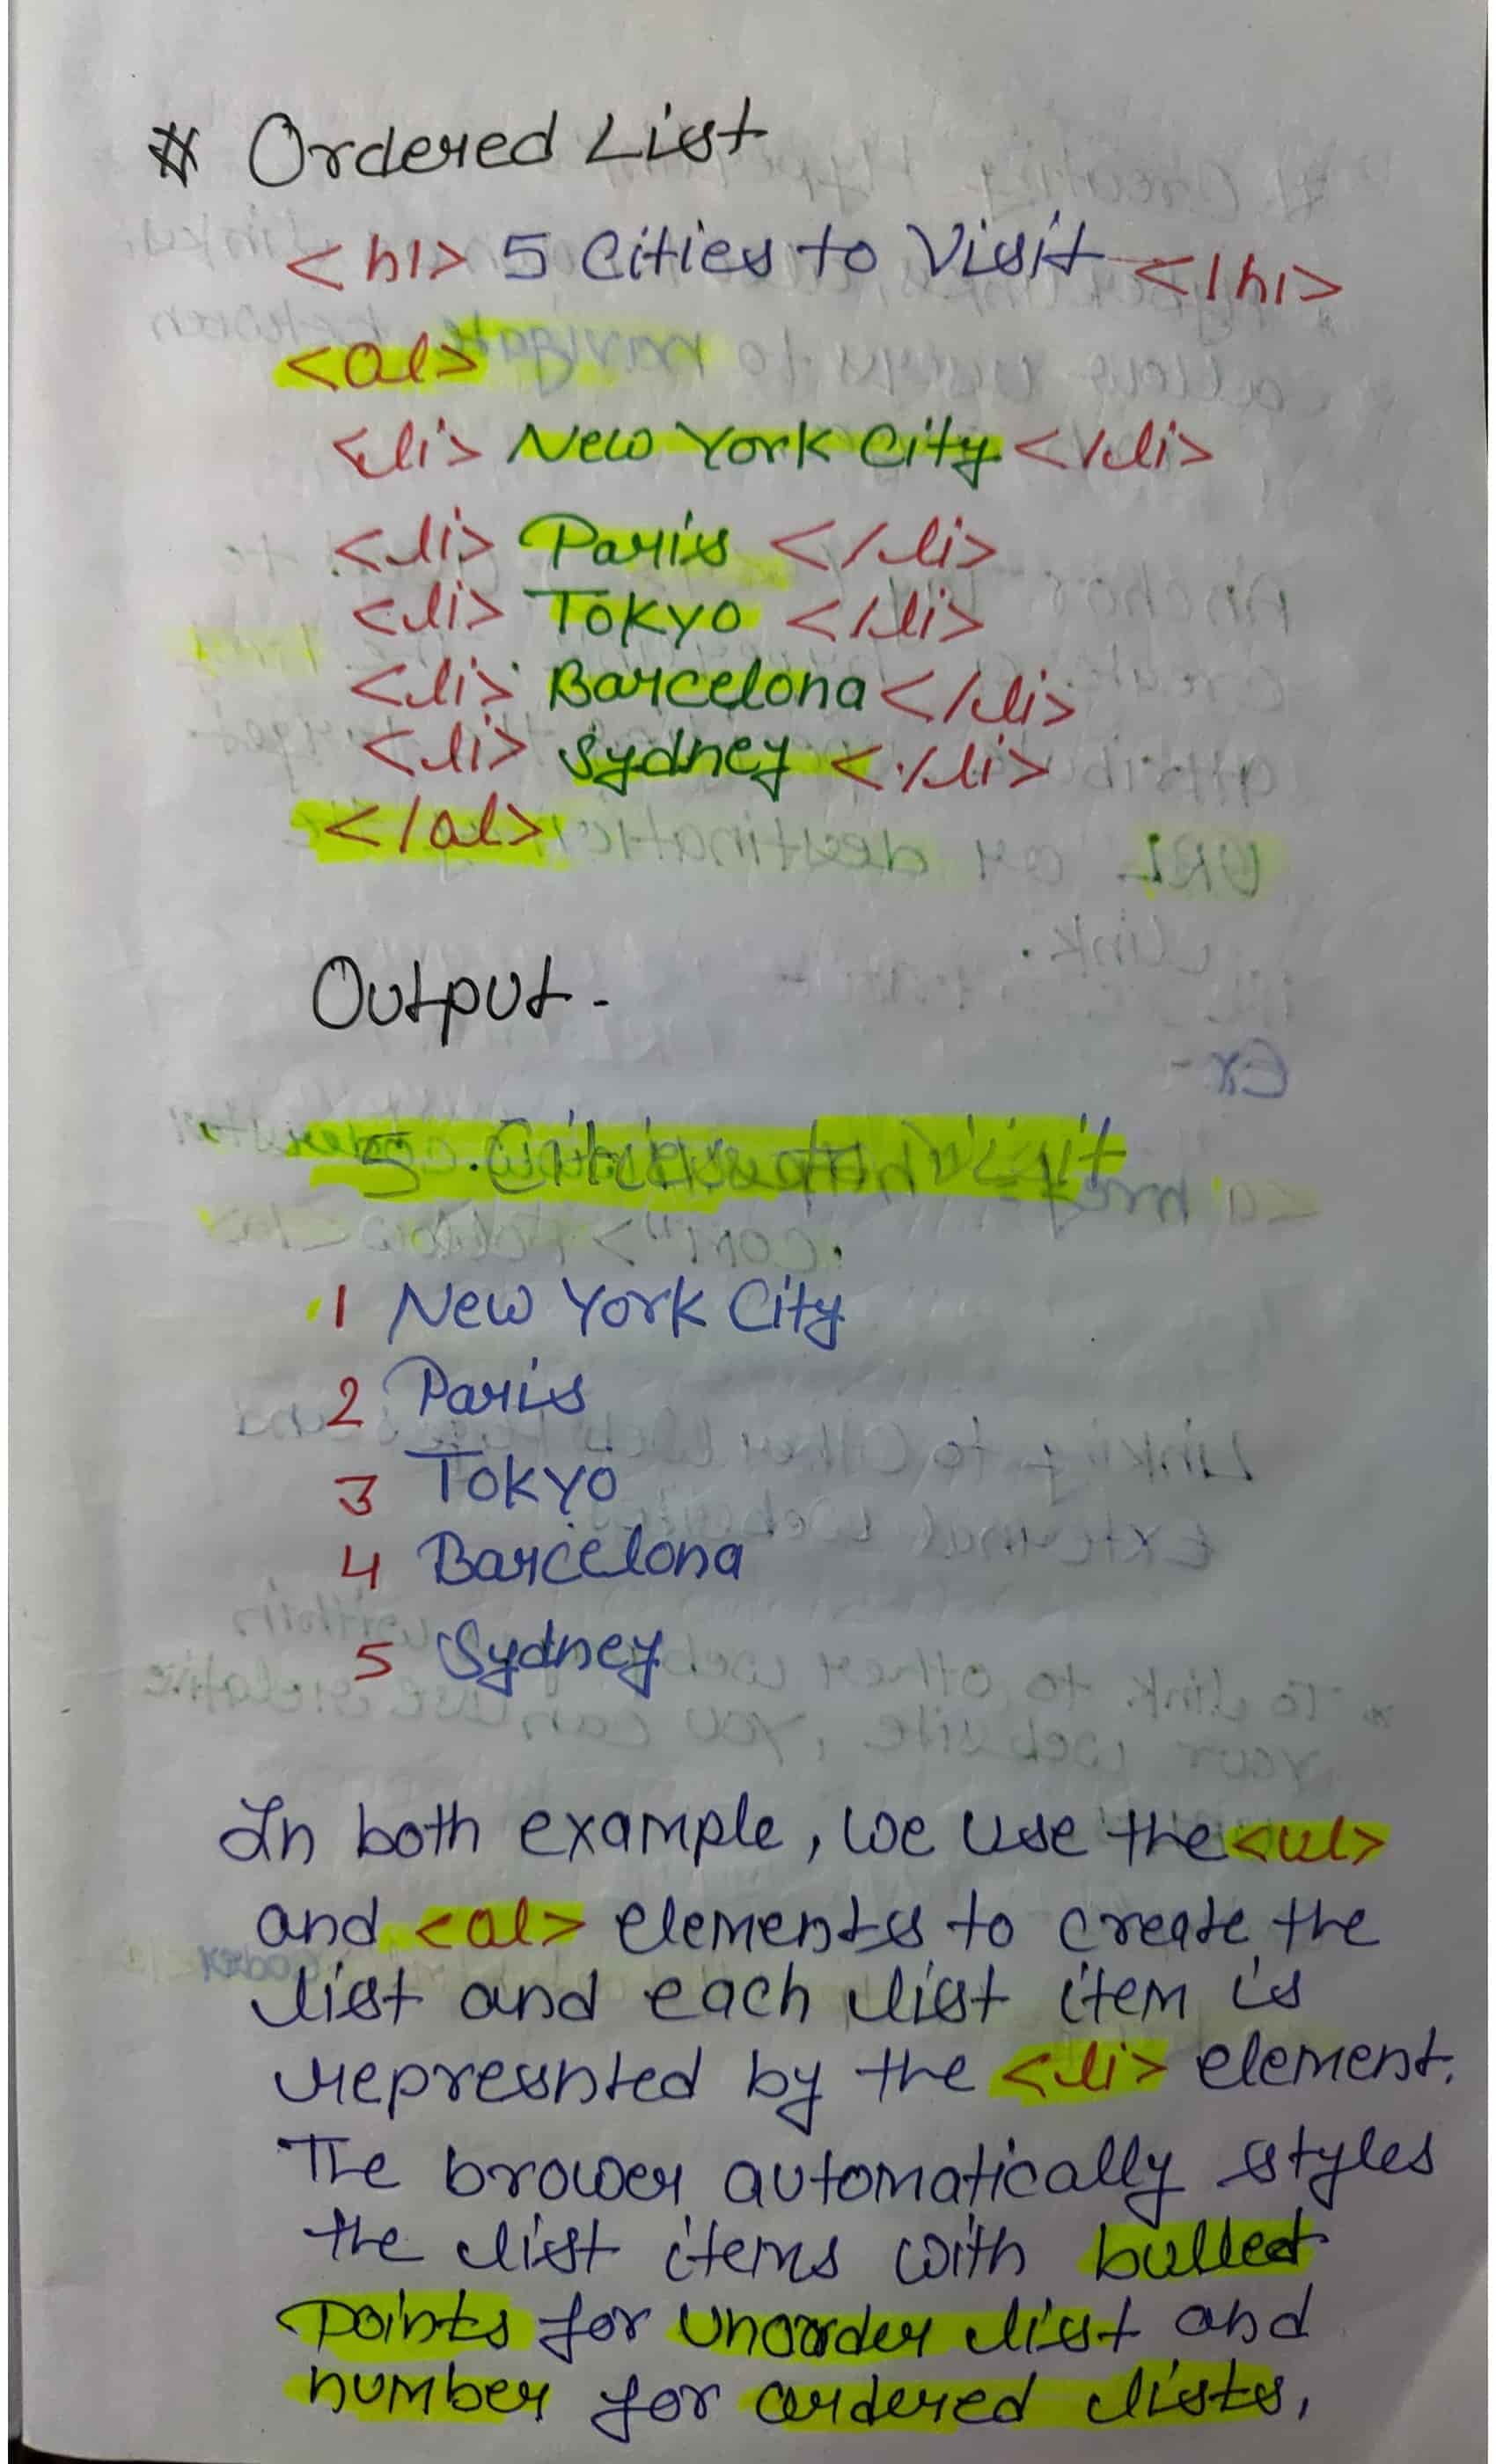 # Ordered List
<h1> 5 Cities to Visit </h1>
<ol>
<li> New York City </li>
<li> Paris </li>
<li> Tokyo </li>
<li> Barcelona </li>
<li> Sydney </li>
</ol>
Output -
5 Cities to Visit
1 New York City
2 Paris
3 Tokyo
4 Barcelona
5 Sydney
In both example, we use the <ul>
and <ol> elements to create the
list and each list item is
represnted by the <li> element.
The brower automatically styles
the list items with bulled
points for unorder list and
number for ordered lists,